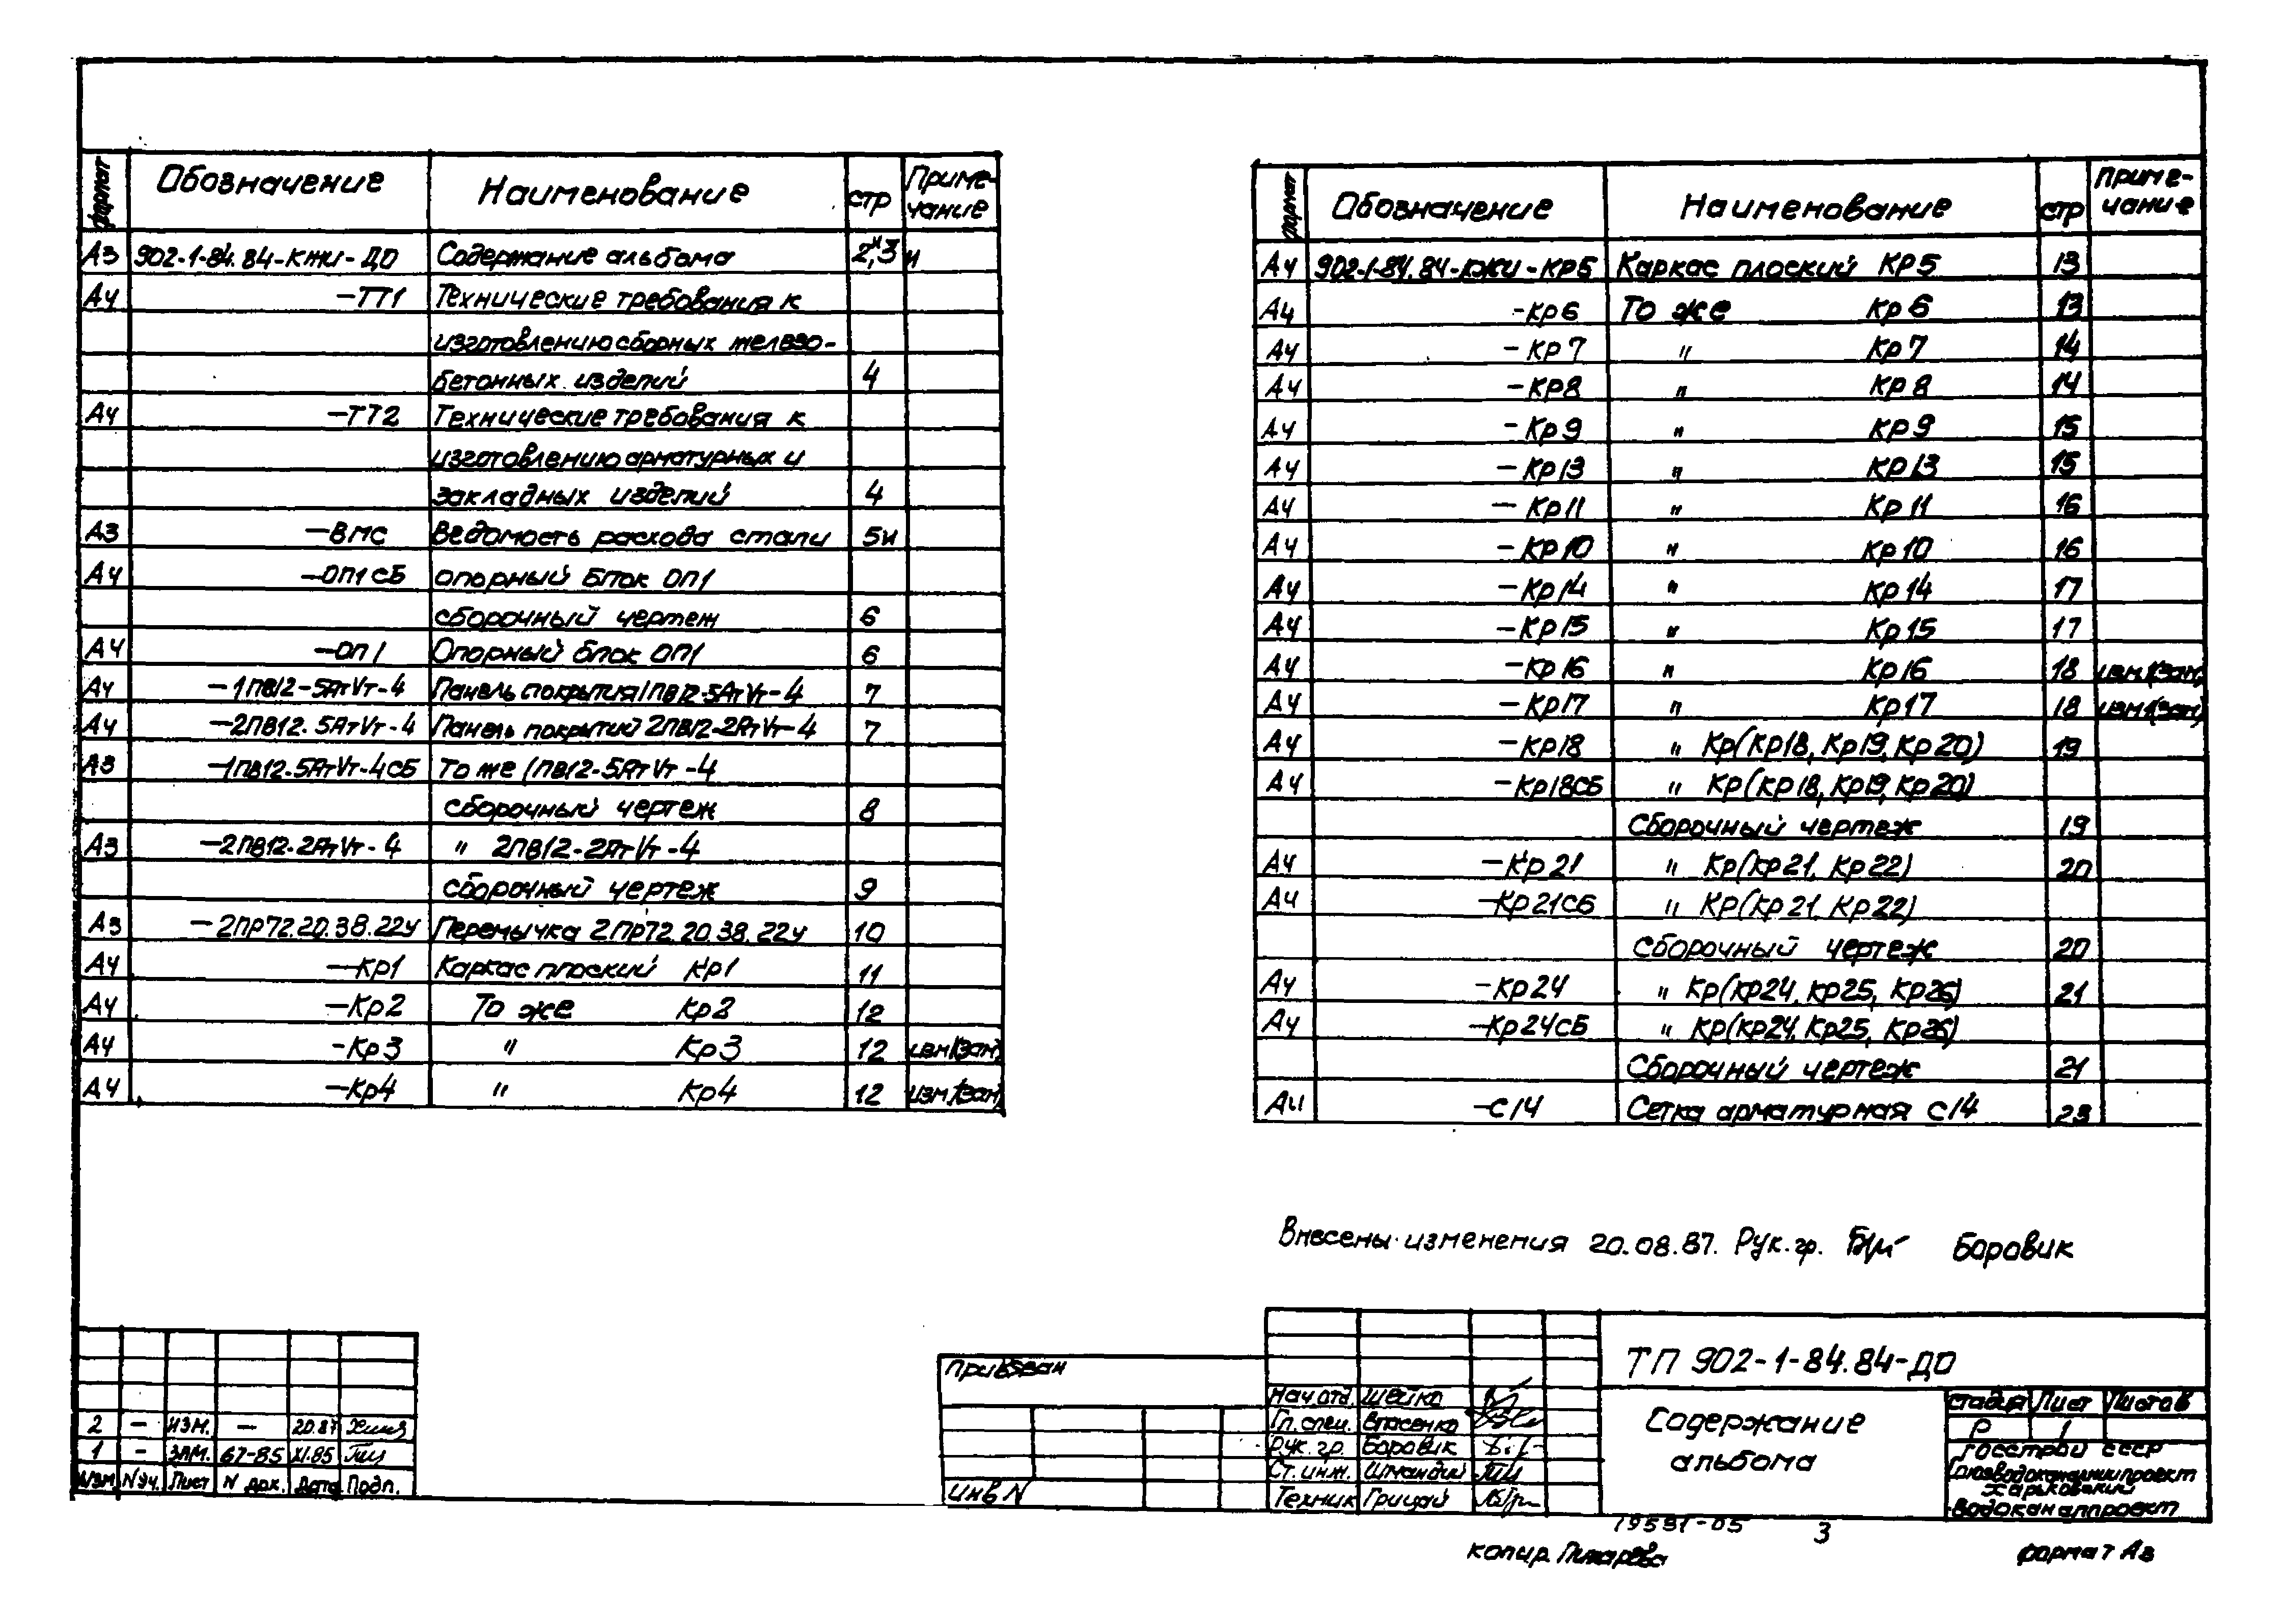 формат Обозначение Наименование стр Приме-
чание
А3 902-1-84.84-КЖИ-ДО Содержание альбома 2и,3и
А4 -ТТ1 Технические требования к
изготовлению сборных железо-
бетонных изделий 4
А4 -ТТ2 Технические требования к
изготовлению арматурных и
закладных изделий 4
А3 -ВМС Ведомость расхода стали 5и
А4 -ОП1СБ Опорный блок ОП1
сборочный чертеж 6
А4 -ОП1 Опорный блок ОП1 6
А4 -1ПВ12-5АтVт-4 Панель покрытия 1ПВ12-5АтVт-4 7
А4 -2ПВ12.5АтVт-4 Панель покрытий 2ПВ12-2АтVт-4 7
А3 -1ПВ12-5АтVт-4СБ То же 1ПВ12-5АтVт-4
сборочный чертеж 8
А3 -2ПВ12-2АтVт-4 " 2ПВ12-2АтVт-4
сборочный чертеж 9
А3 -2ПР72.20.38.22у Перемычка 2ПР72.20.38.22у 10
А4 -Кр1 Каркас плоский Кр1 11
А4 -Кр2 То же Кр2 12
А4 -Кр3 " Кр3 12 изм1(зам)
А4 -Кр4 " Кр4 12 изм1(зам)
формат Обозначение Наименование стр Приме-
чание
А4 902-1-84.84-КЖИ-КР5 Каркас плоский КР5 13
А4 -Кр6 То же Кр6 13
А4 -Кр7 " Кр7 14
А4 -Кр8 " Кр8 14
А4 -Кр9 " Кр9 15
А4 -Кр13 " Кр13 15
А4 -Кр11 " Кр11 16
А4 -Кр10 " Кр10 16
А4 -Кр14 " Кр14 17
А4 -Кр15 " Кр15 17
А4 -Кр16 " Кр16 18 изм1(зам)
А4 -Кр17 " Кр17 18 изм1(зам)
А4 -Кр18 " Кр(Кр18, Кр19, Кр20) 19
А4 -Кр18СБ " Кр(Кр18, Кр19, Кр20)
Сборочный чертеж 19
А4 -Кр21 " Кр(Кр21, Кр22) 20
А4 -Кр21СБ " Кр(Кр21, Кр22)
Сборочный чертеж 20
А4 -Кр24 " Кр(Кр24, Кр25, Кр26) 21
А4 -Кр24СБ " Кр(Кр24, Кр25, Кр26)
Сборочный чертеж 21
А4 -С14 Сетка арматурная С14 23
Внесены изменения 20.08.87. Рук.гр. Боровик
2 - ИЗМ. - 20.87
1 - ЗАМ. 67-85 XI.85
Изм Nуч. Лист N док. Дата Подп.
Привязан
Инв N
Нач.отд. Шейко
Гл.спец. Власенко
Рук.гр. Боровик
Ст.инж. Шмандий
Техник Грицай
ТП 902-1-84.84-ДО
Содержание
альбома
Стадия Лист Листов
Р 1
Госстрой СССР
Союзводоканалниипроект
Харьковский
Водоканалпроект
19531-05 3
копир. формат А3